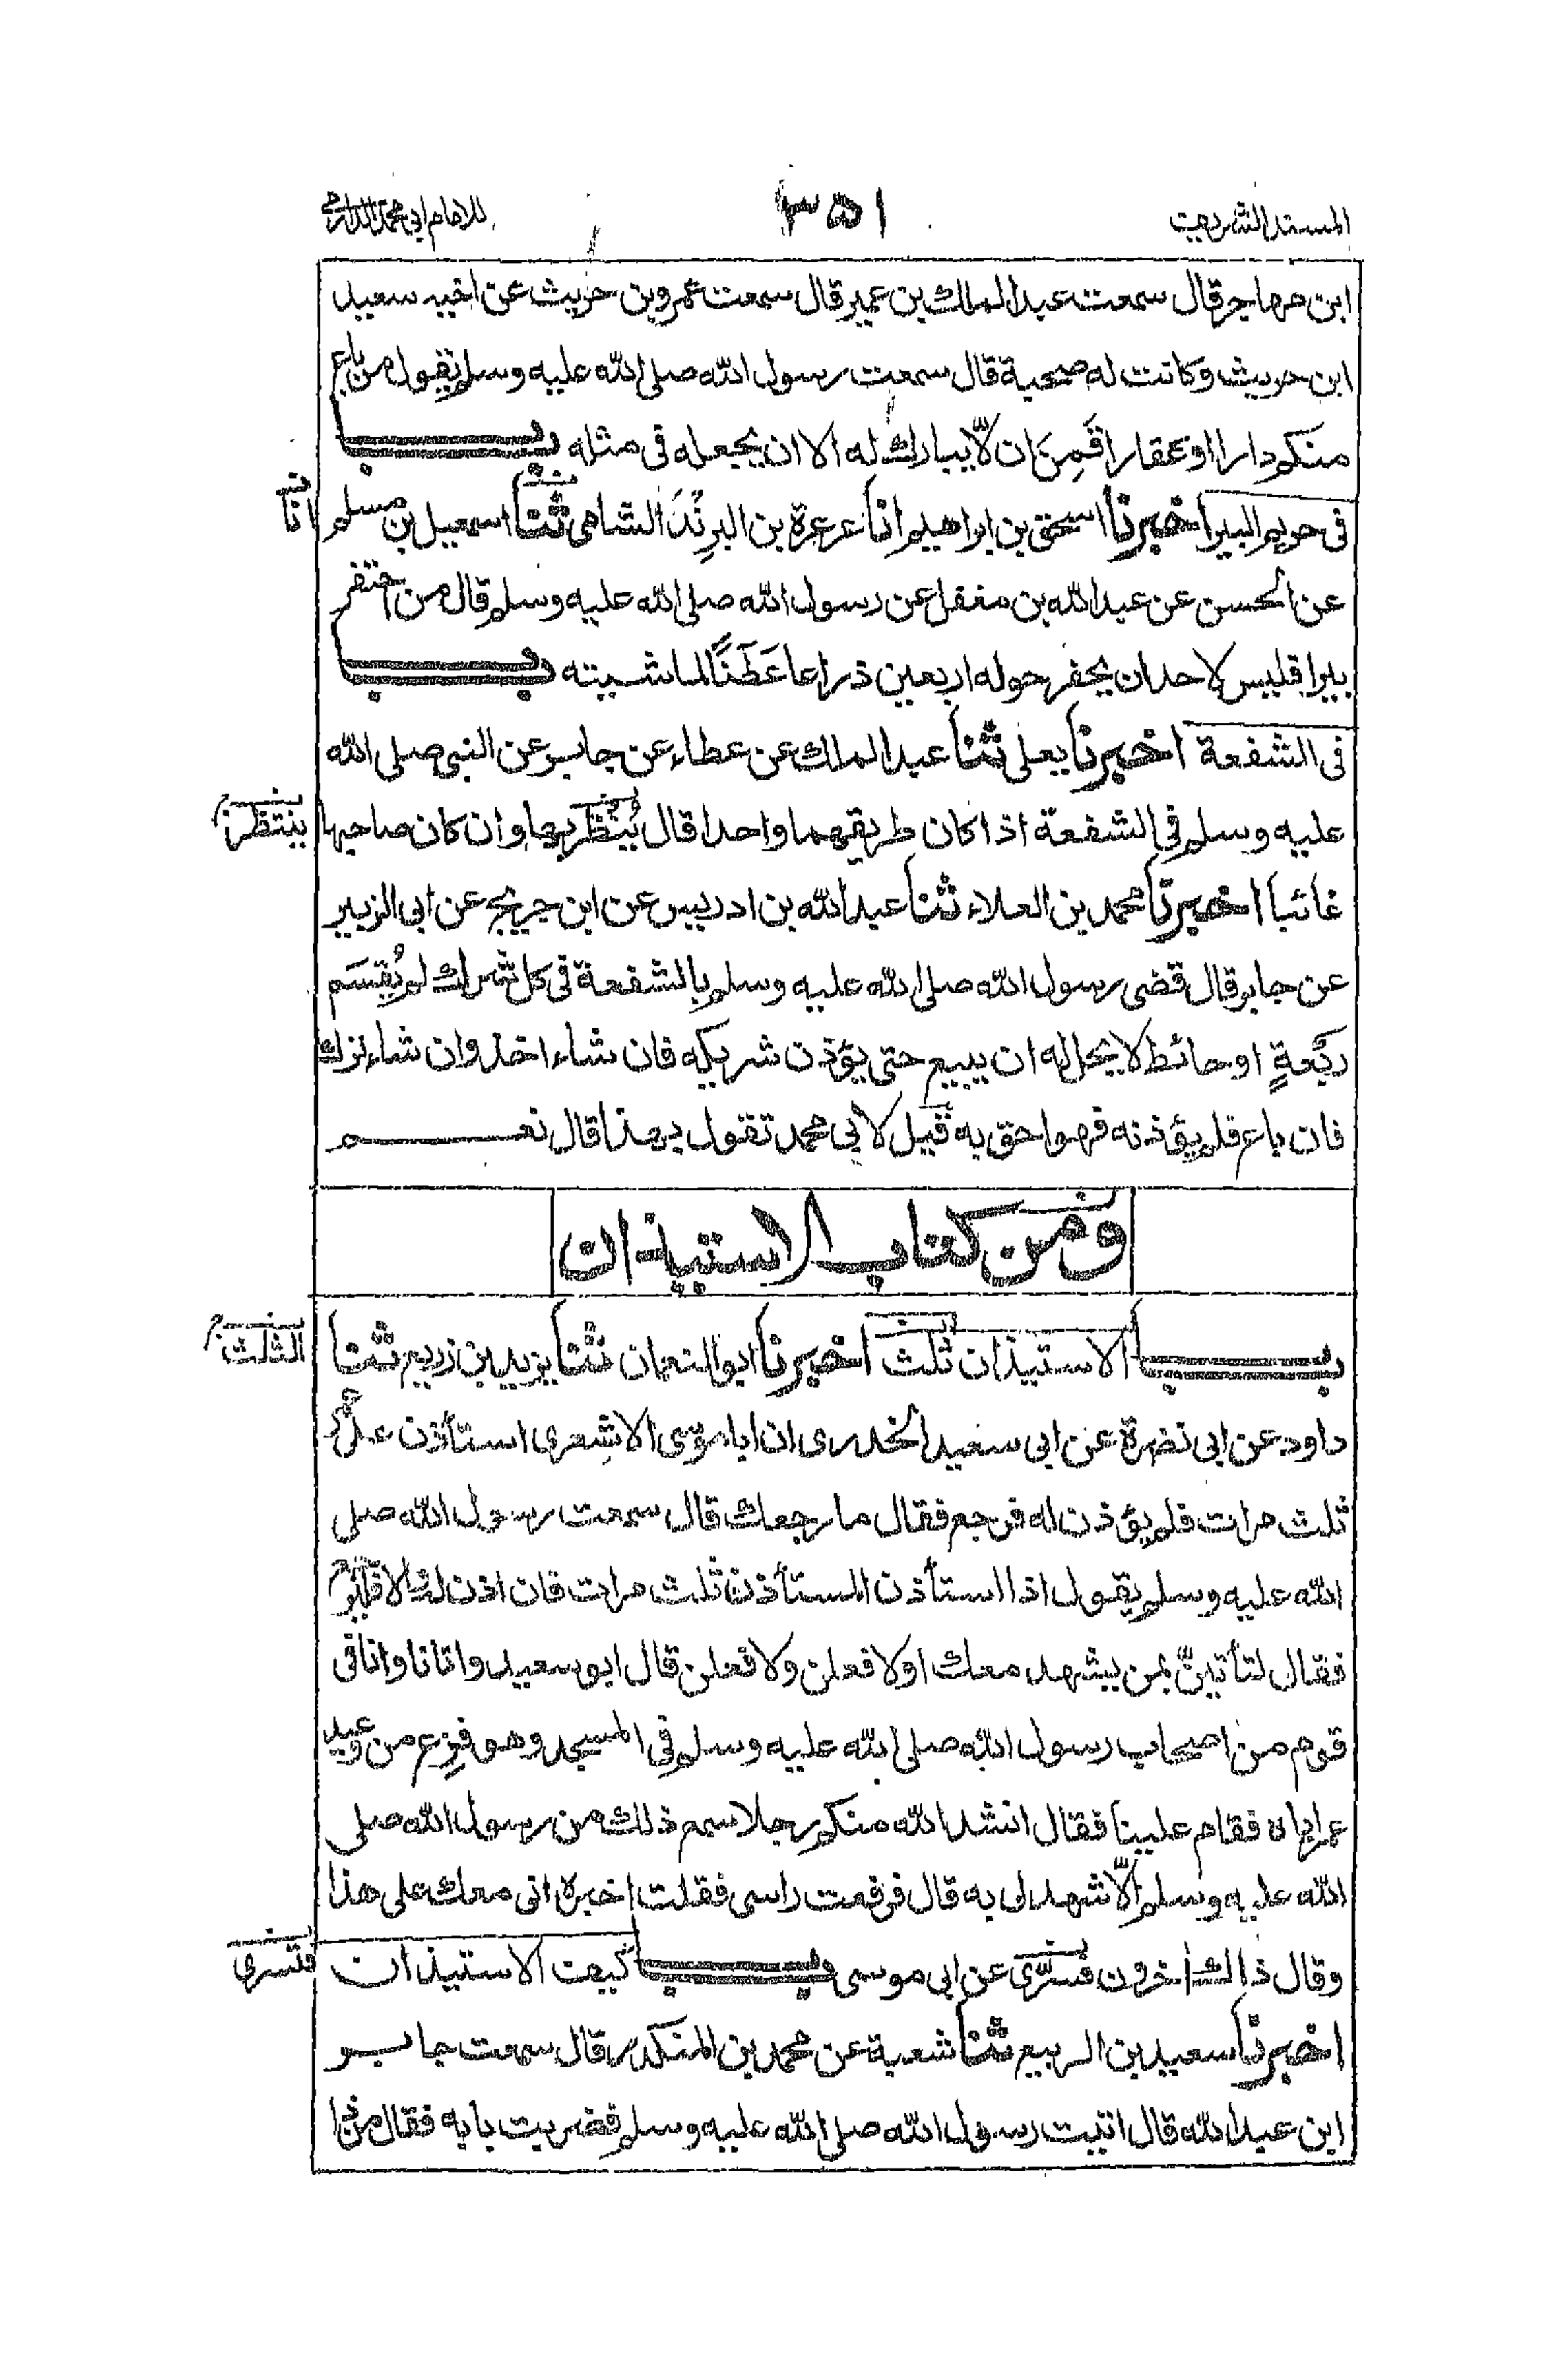 المسند الشريف
٣٥١
للامام ابى محمد الدارمى
ابن مهاجر قال سمعت عبد الملك بن عمير قال سمعت عمرو بن حريث عن اخيه سعيد
ابن حريث وكانت له صحبة قال سمعت رسول الله صلى الله عليه وسلم يقول من باع
منكم دارا او عقارا قَمِنَ ان لّا يبارك له الا ان يجعله فى مثله باب
فى حريم البير اخبرنا اسحق بن ابراهيم انا عرعرة بن البرِنْدَ الشامى ثنا اسمعيل بن مسلم
انا
عن الحسن عن عبد الله بن مغفل عن رسول الله صلى الله عليه وسلم قال من احتفر
بيرا فليس لاحد ان يحفر حوله اربعين ذراعا عَطَنًا لماشيته باب
فى الشفعة اخبرنا يعلى ثنا عبد الملك عن عطاء عن جابر عن النبى صلى الله
عليه وسلم فى الشفعة اذا كان طريقهما واحدا قال يُنْتَظَر بها وان كان صاحبها
ينتظر
غائبا اخبرنا محمد بن العلاء ثنا عبد الله بن ادريس عن ابن جريج عن ابى الزبير
عن جابر قال قضى رسول الله صلى الله عليه وسلم بالشفعة فى كل شرك لم يُقسَم
رَبْعةٍ او حائط لا يحل له ان يبيع حتى يؤذن شريكه فان شاء اخذ وان شاء ترك
فان باع فلم يؤذنه فهو احق به قيل لابى محمد تقول بهذا قال نعم
ومن كتاب الاستيذان
باب الاستيذان ثلث اخبرنا ابو النعمان ثنا يزيد بن زريع ثنا
الثلث
داود عن ابى نضرة عن ابى سعيد الخدرى ان ابا موسى الاشعرى استأذن على عمر
ثلث مرات فلم يؤذن له فرجع فقال ما رجعك قال سمعت رسول الله صلى
الله عليه وسلم يقول اذا استأذن المستأذن ثلث مرات فان اذن له والا فليرجع
فقال لتأتينّ بمن يشهد معك اولا فعلن ولا فعلن قال ابو سعيد واتانا وانا فى
قوم من اصحاب رسول الله صلى الله عليه وسلم فى المسجد وهو فزع من وعيد
عمر اياه فقام علينا فقال انشد الله منكم رجلا سمع ذلك من رسول الله صلى
الله عليه وسلم الّا شهد لى به قال فرفعت راسى فقلت اخبره انى معك على هذا
وقال ذالك اخرون فسُرّى عن ابى موسى باب كيف الاستيذان
فتسرى
اخبرنا سعيد بن الربيع ثنا شعبة عن محمد بن المنكدر قال سمعت جابر
ابن عبد الله قال اتيت رسول الله صلى الله عليه وسلم فضربت بابه فقال من ذا